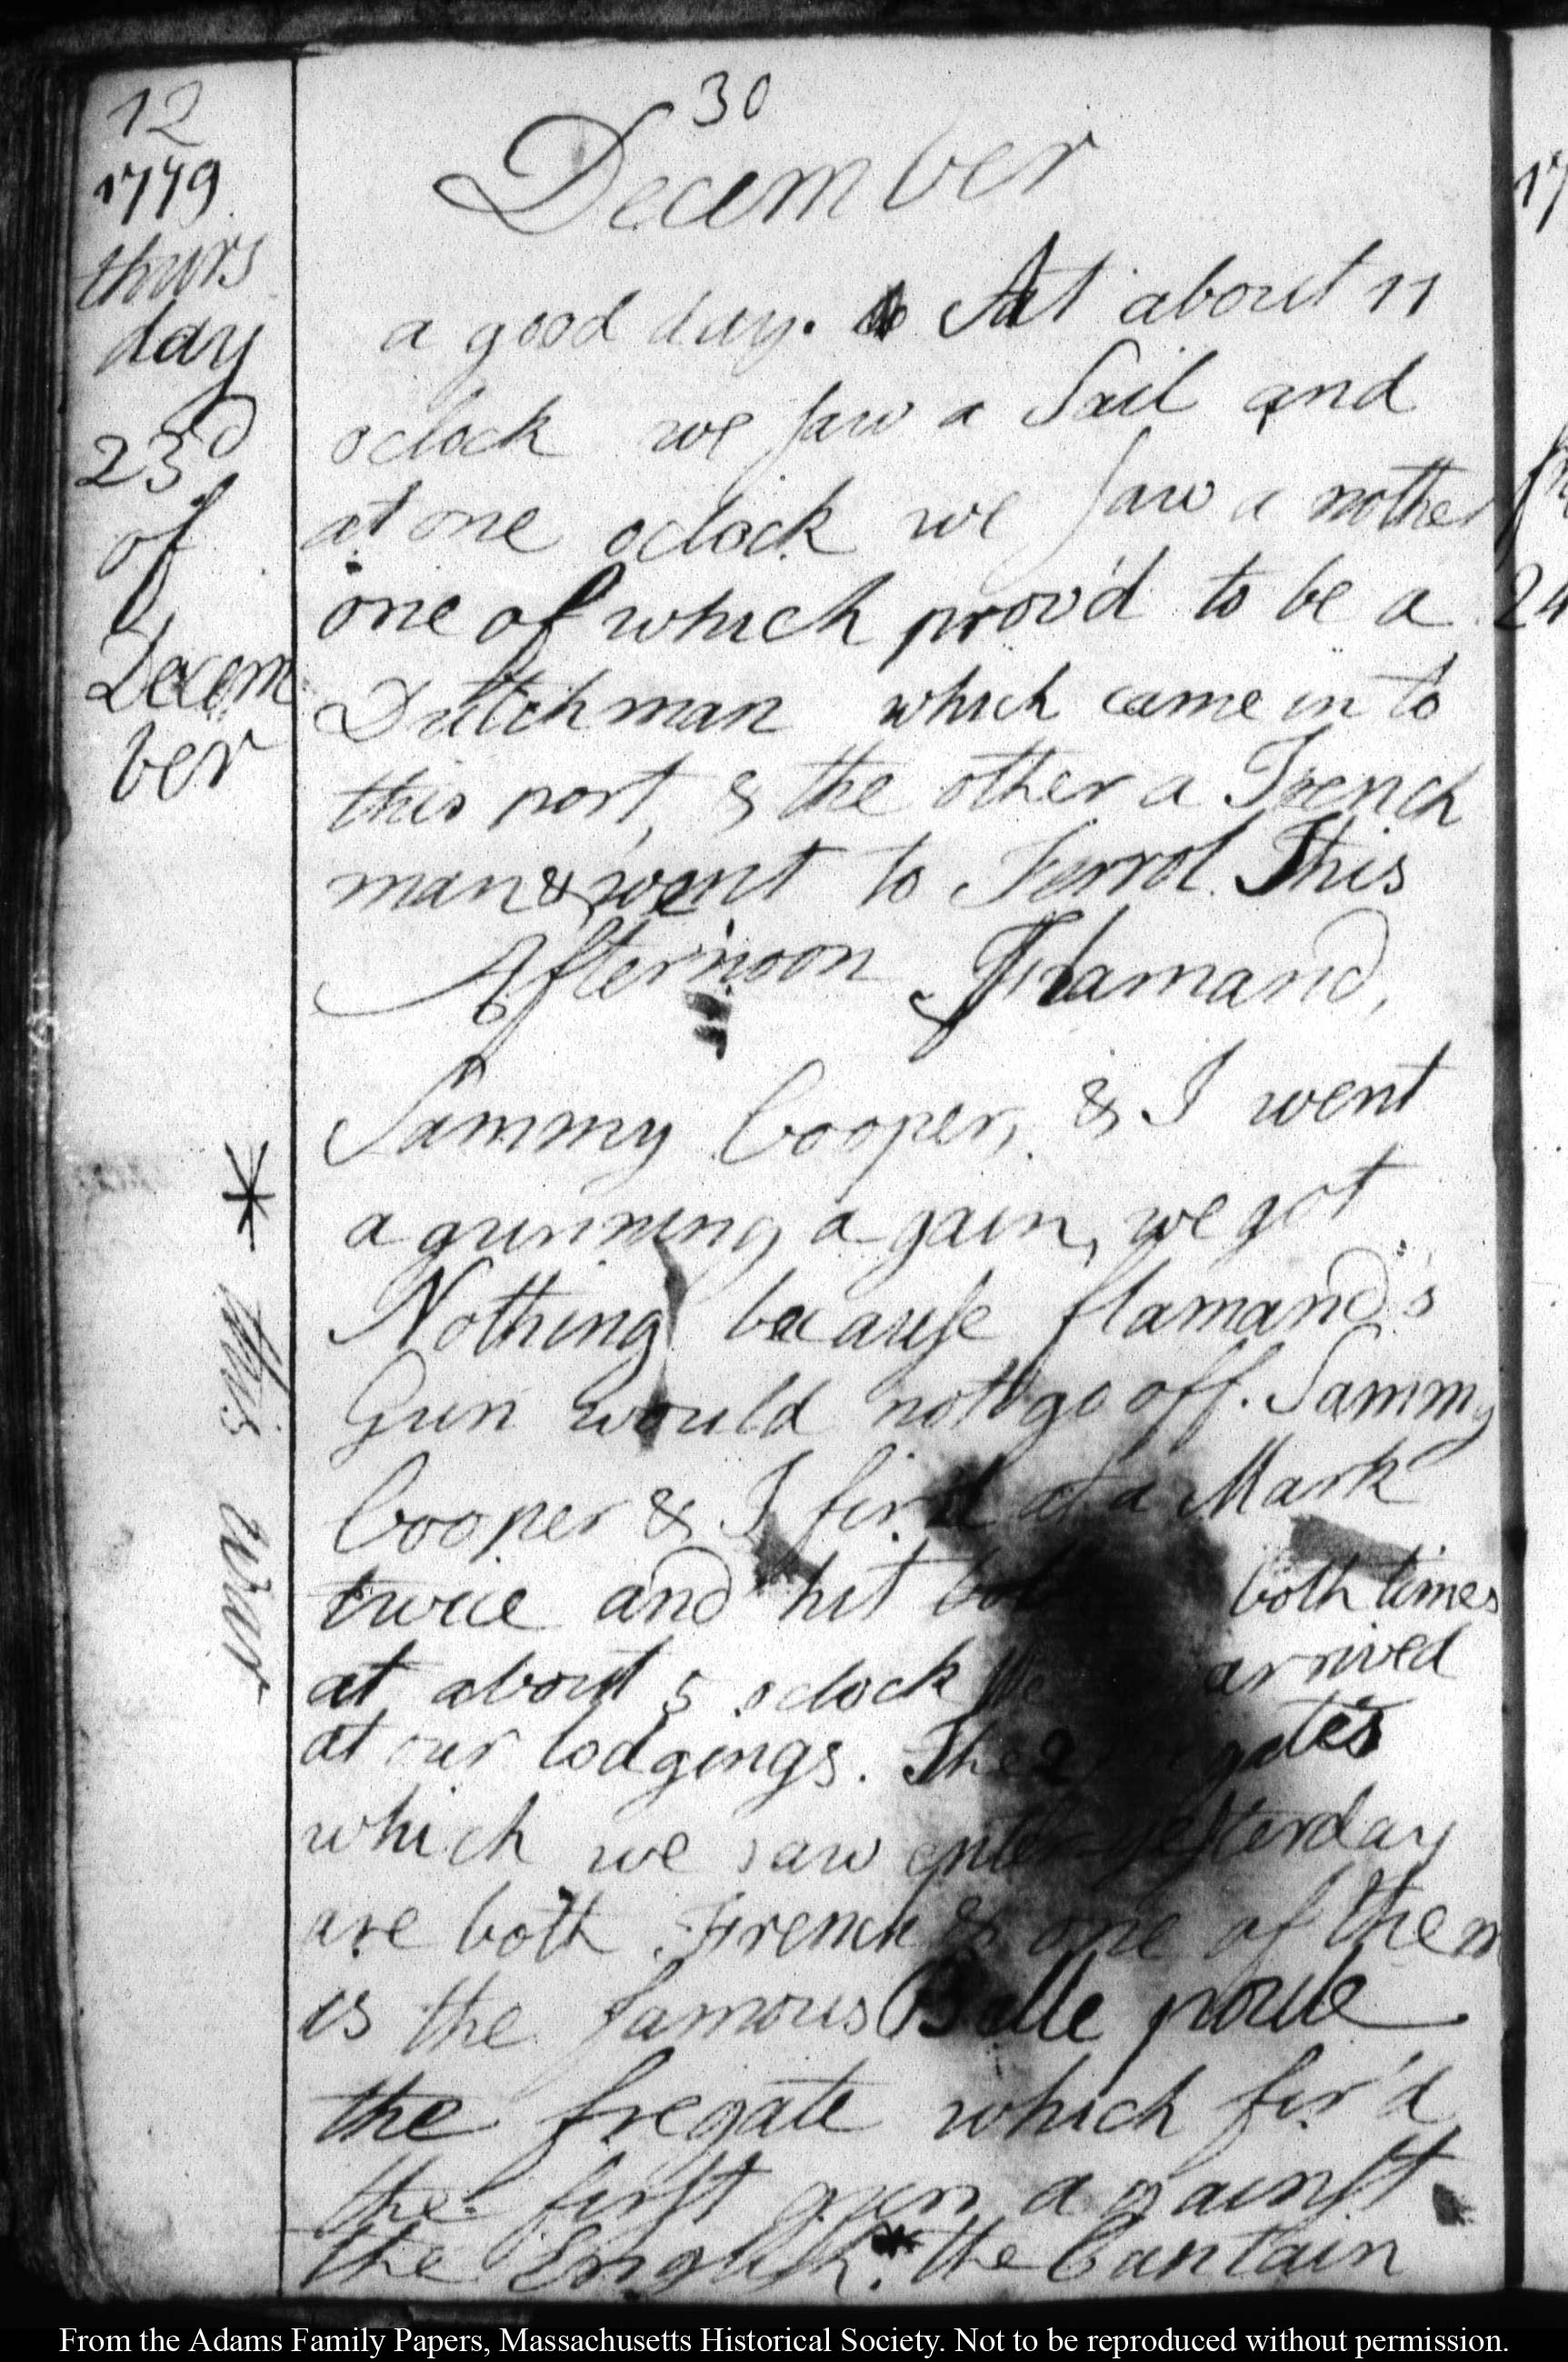 12
1779
thurs
day
23d
of
Decem
ber
* this war
30
December
a good day. At about 11
oclock we saw a Sail and
at one oclock we saw a nother
one of which prov'd to be a
Dutchman which came in to
this port, & the other a French
man & went to Ferrol. This
Afternoon Flamand,
Sammy Cooper, & I went
a gunning a gain, we got
Nothing because flamand's
Gun would not go off. Sammy
Cooper & I fir'd at a Mark
twice and hit both times
at about 5 oclock We arrived
at our lodgings. The 2
which we saw enter yesterday
are both French & one of them
is the famous Belle poule
the fregate which fir'd
the first gun against
the English.* the Captain
17
24
From the Adams Family Papers, Massachusetts Historical Society. Not to be reproduced without permission.